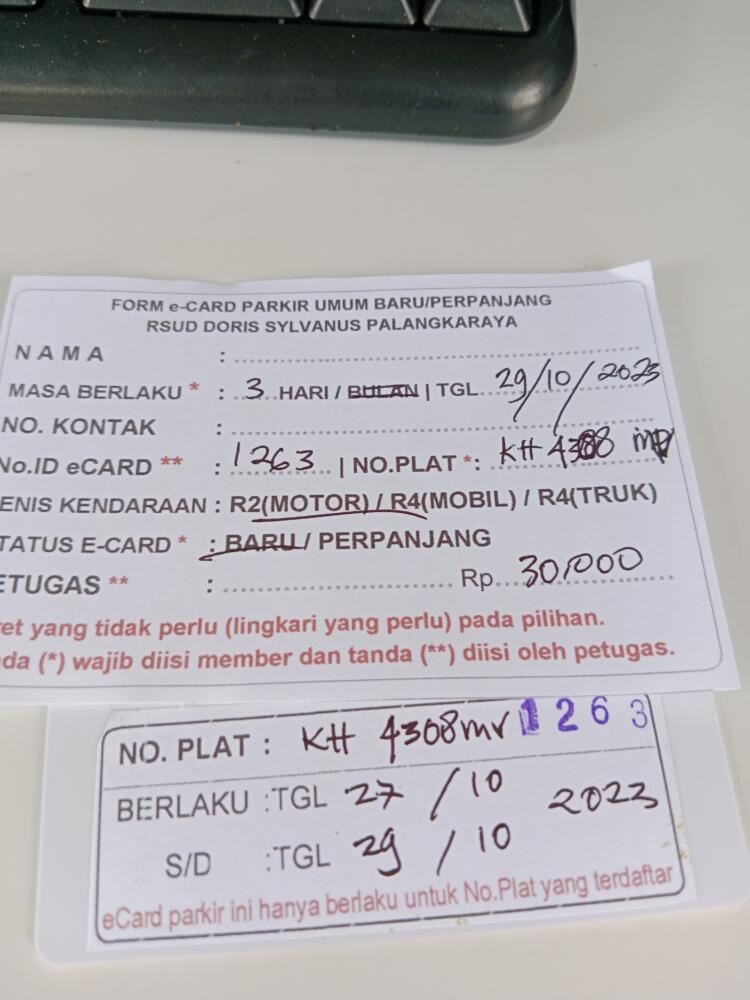 FORM e-CARD PARKIR UMUM BARU/PERPANJANG
RSUD DORIS SYLVANUS PALANGKARAYA
NAMA :
MASA BERLAKU * : 3 HARI / BULAN | TGL 29/10/2023
NO. KONTAK :
No.ID eCARD ** : 1263 | NO.PLAT *: KH 4308
ENIS KENDARAAN : R2(MOTOR) / R4(MOBIL) / R4(TRUK)
TATUS E-CARD * : BARU/ PERPANJANG
ETUGAS ** : Rp 30,000
ret yang tidak perlu (lingkari yang perlu) pada pilihan.
da (*) wajib diisi member dan tanda (**) diisi oleh petugas.
NO. PLAT : KH 4308 mv 1263
BERLAKU :TGL 27 / 10 2023
S/D :TGL 29 / 10
eCard parkir ini hanya berlaku untuk No.Plat yang terdaftar